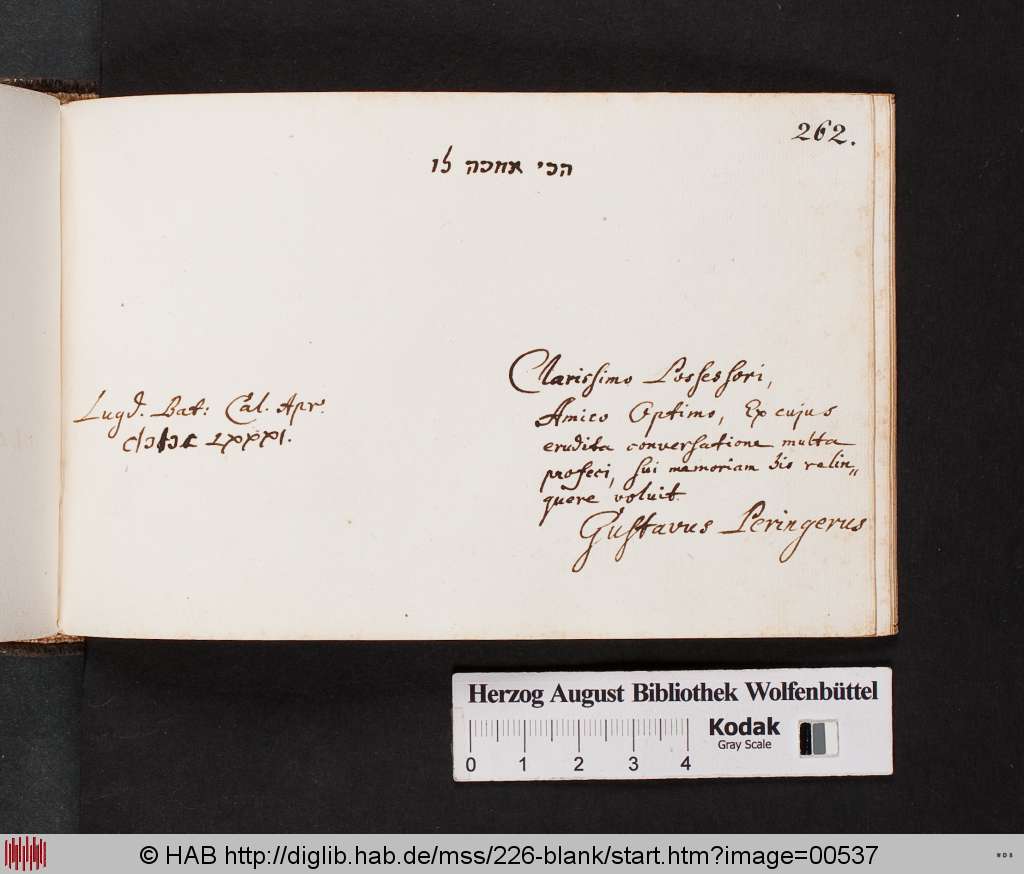 262.
הכי אחכה לו
Clarissimo Possessori,
Amico Optimo, Ex cujus
erudita conversatione multa
profeci, sui memoriam hic relin„
quere voluit
Gustavus Peringerus
Lugd. Bat: Cal. Apr.
cIↃIↃc LXXXI.
Herzog August Bibliothek Wolfenbüttel
Kodak
Gray Scale
0 1 2 3 4
© HAB http://diglib.hab.de/mss/226-blank/start.htm?image=00537